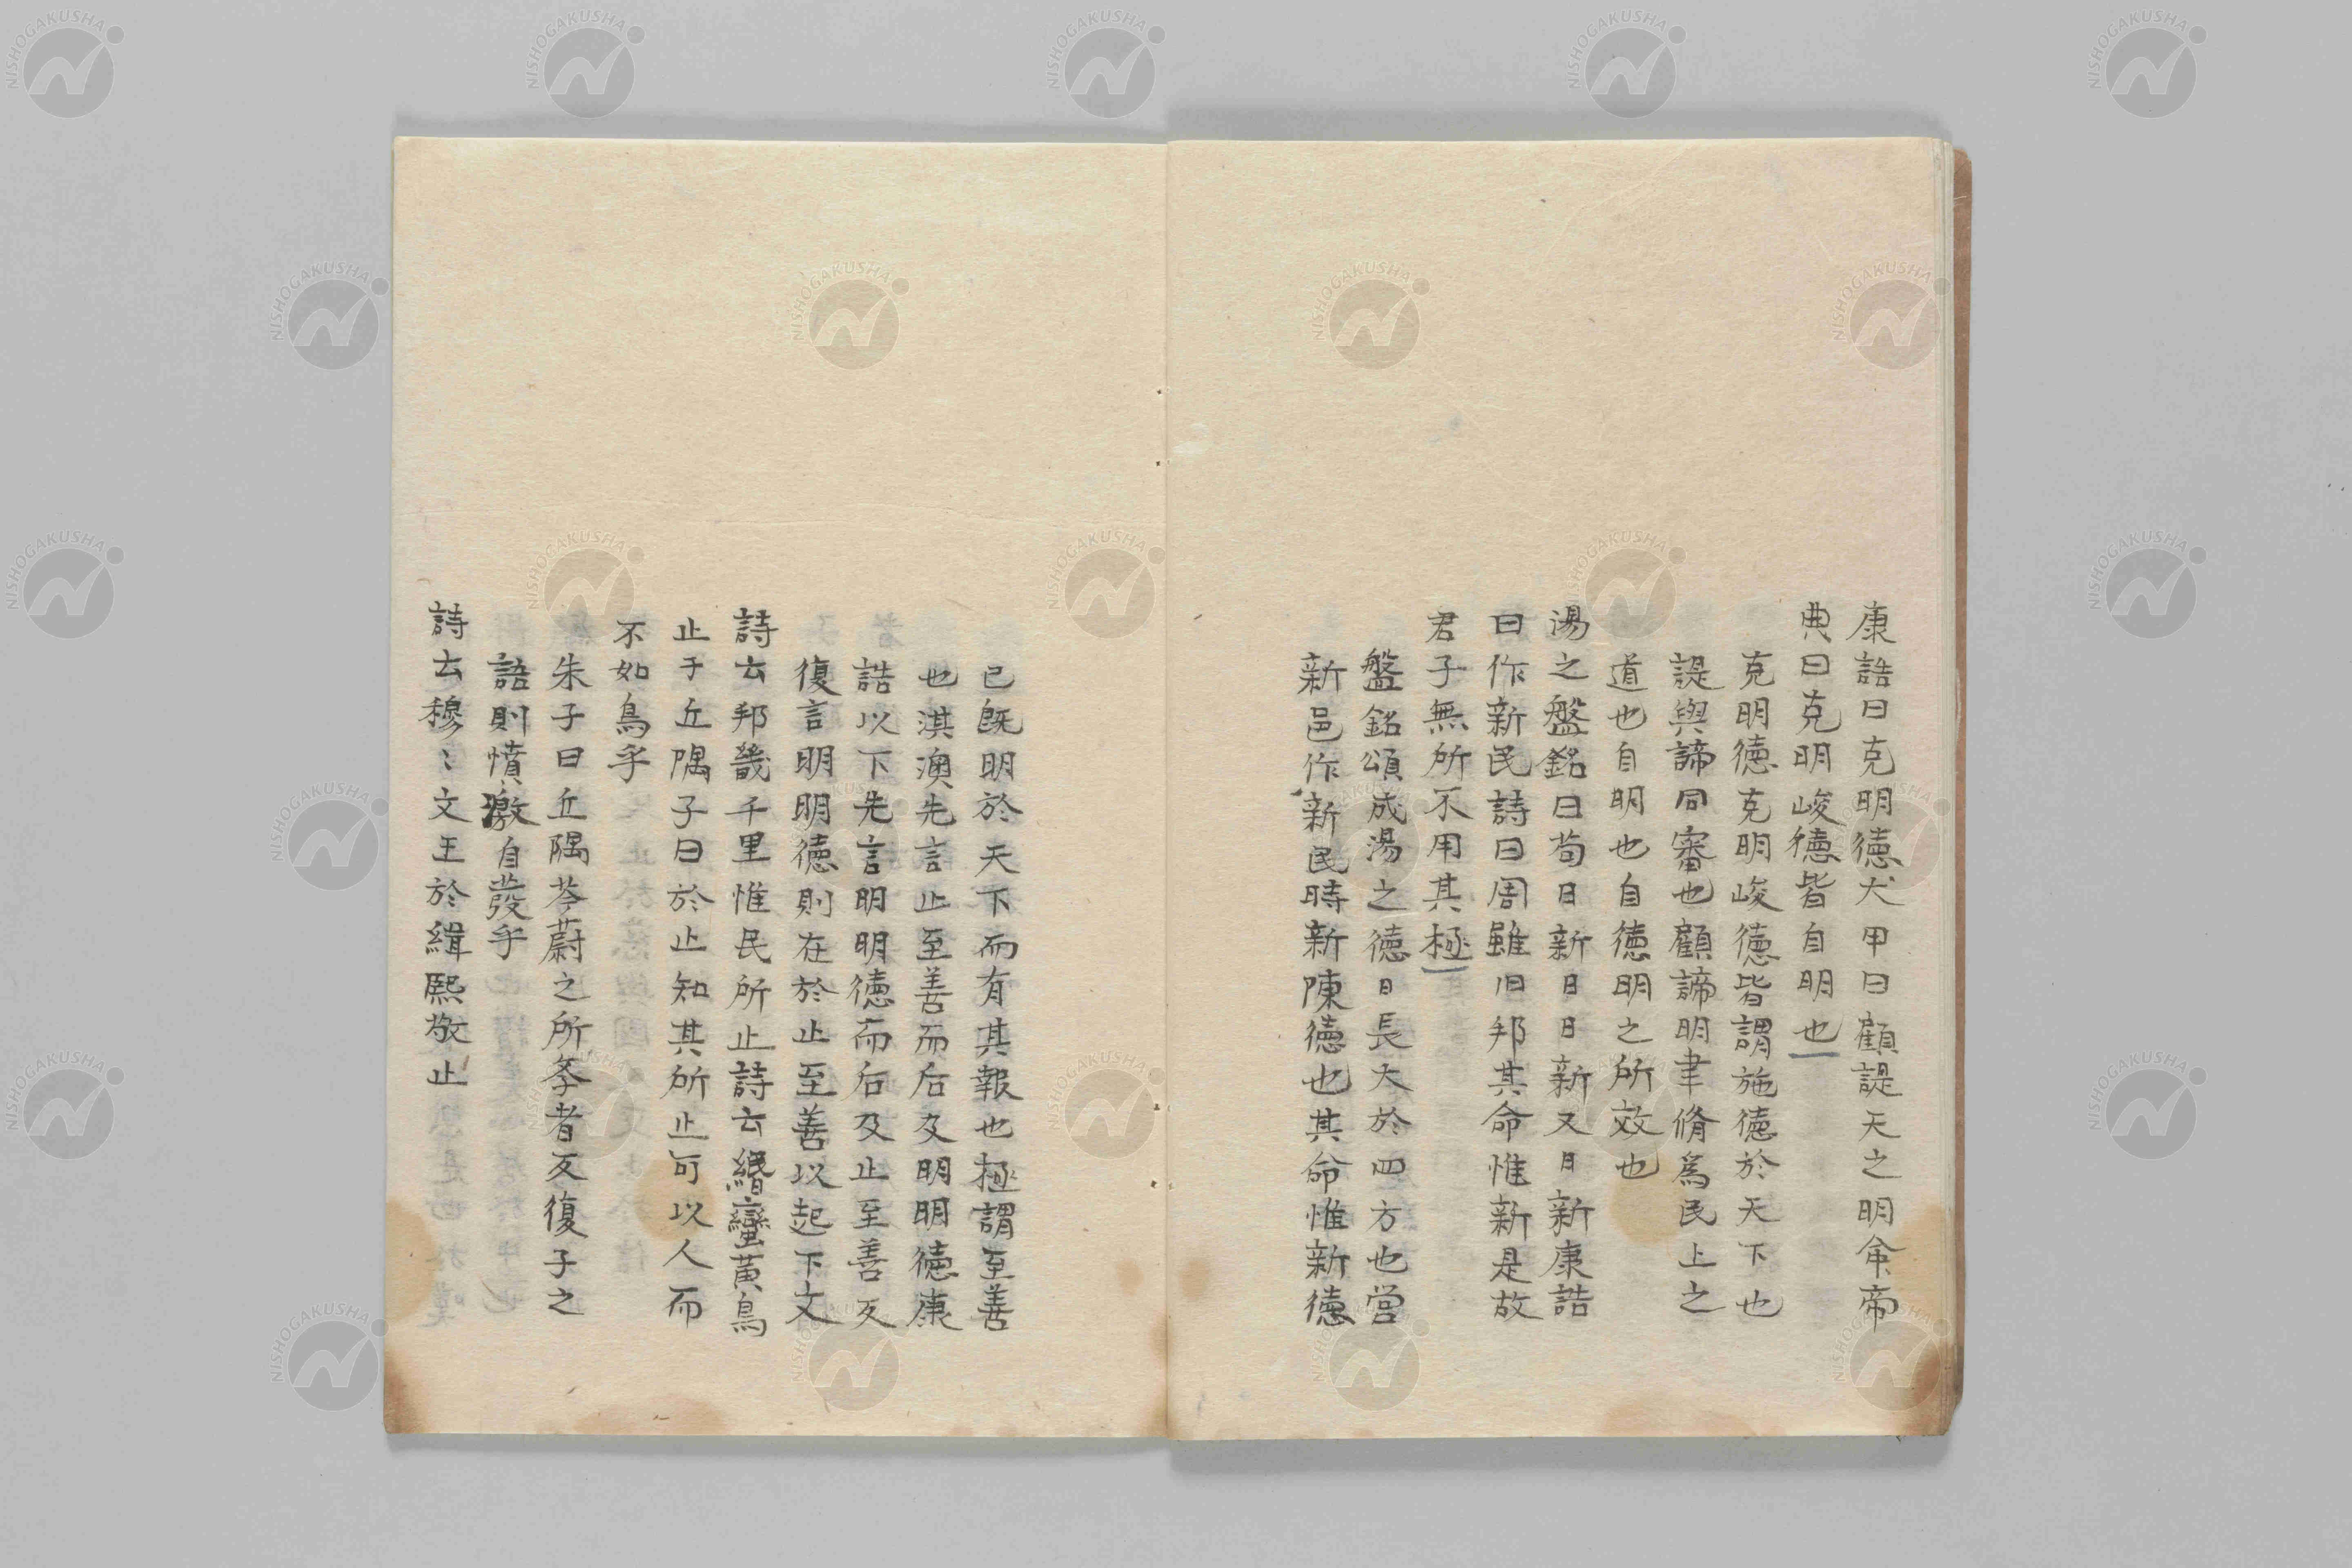 康誥曰克明徳大甲曰顧諟天之明命帝
典曰克明峻徳皆自明也
克明徳克明峻徳皆謂施徳於天下也
諟與諦同審也顧諦明聿脩爲民上之
道也自明也自徳明之所效也
湯之盤銘曰苟日新日日新又日新康誥
曰作新民詩曰周雖旧邦其命惟新是故
君子無所不用其極
盤銘頌成湯之徳日長大於四方也営
新邑作新民時新陳徳也其命惟新徳
已既明於天下而有其報也極謂至善
也淇澳先言止至善而后及明明徳康
誥以下先言明明徳而后及止至善反
復言明明徳則在於止至善以起下文
詩云邦畿千里惟民所止詩云緡蠻黄鳥
止于丘隅子曰於止知其所止可以人而
不如鳥乎
朱子曰丘隅岑蔚之所孝者反復子之
語則憤激自發乎
詩云穆〻文王於緝熙敬止
NISHOGAKUSHA